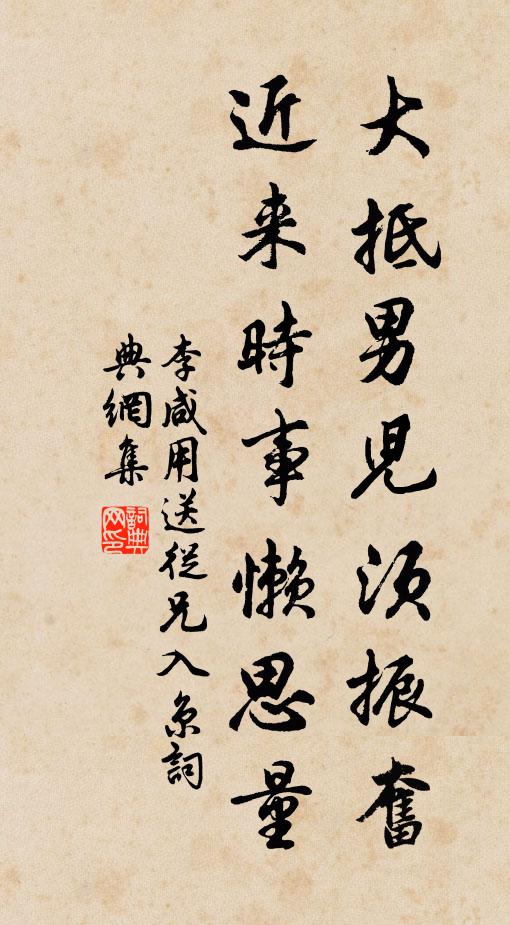 大抵男児須振奮
近来時事懒思量
李咸用送従兄入京詞
典網集
詞典网印